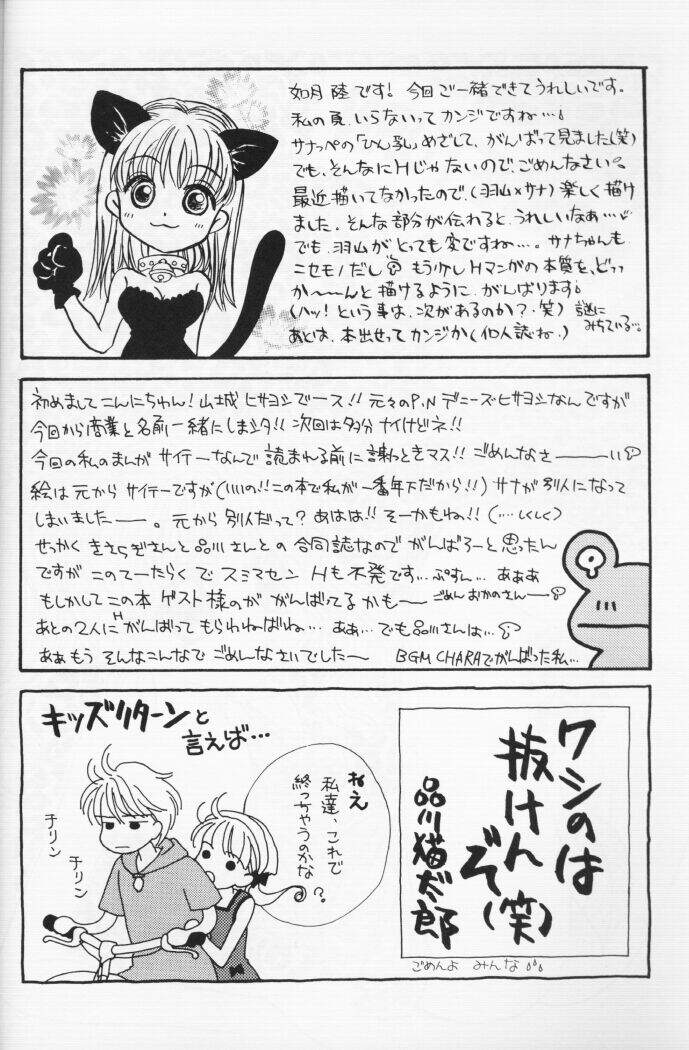 如月 陸です! 今回ご一緒できてうれしいです。
私の頁、いらないってカンジですね…
サナッペの「ひん乳」めざして、がんばって見ました(笑)
でも、そんなにHじゃないので、ごめんなさい。
最近描いてなかったので、(羽山×サナ)楽しく描け
ました。そんな部分が伝わると、うれしいなぁ…
でも、羽山がとっても変ですね…。サナちゃんも
ニセモノだし もう少しHマンガの本質を、どーっ
か〜〜んと描けるように、がんばります
(ハッ! という事は、次があるのか?・笑) 謎に
みちている…。
あとは、本出せってカンジか(個人誌ね・)
初めまして こんにちゎん! 山城 ヒサヨシでース!! 元々のP.N デニーズ・ヒサヨシなんですが
今回から商業と名前一緒にしまシタ!! 次回は多分ナイけどネ!!
今回の私のまんが サイテーなんで 読まれる前に 謝っときマス!! ごめんなさ――――い
絵は元からサイテーですが(いいの!!この本で私が一番年下だから!!) サナが別人になって
しまいました――。元から別人だって? あはは!! そーかもね!! (…しくしく)
せっかく きさらぎさんと品川さんとの 合同誌なので がんばろーと思たん
ですが このてーたらくで スミマセン Hも不発です…ぷすん… あぁぁ
もしかして この本 ゲスト様のが がんばってるかも〜 ごめん おかのさん〜
あとの2人に H がんばって もらわねばね… ああ…でも品川さんは…
あぁもう そんなこんなで ごめんなさいでした〜 BGM CHARAでがんばった私…
キッズリターンと
言えば…
ワシのは
抜けん
ぞ(笑)
品川猫太郎
ごめんよ みんな
ねえ
私達、これで
終っちゃうのかな
?
チリン
チリン